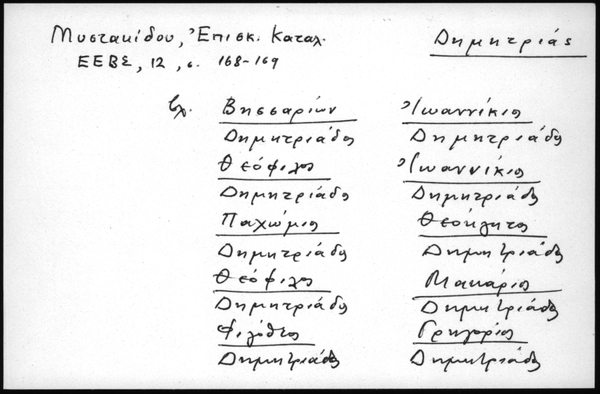 Μυστακίδου, Ἐπισκ. Καταλ.
ΕΕΒΣ, 12, σ. 168-169
Δημητριάς
βλ. Βησσαρίων
Δημητριάδος
Θεόφιλος
Δημητριάδος
Παχώμιος
Δημητριάδος
Θεόφιλος
Δημητριάδος
Φιλόθεος
Δημητριάδος
Ἰωαννίκιος
Δημητριάδος
Ἰωαννίκιος
Δημητριάδος
Θεόκλητος
Δημητριάδος
Μακάριος
Δημητριάδος
Γρηγόριος
Δημητριάδος